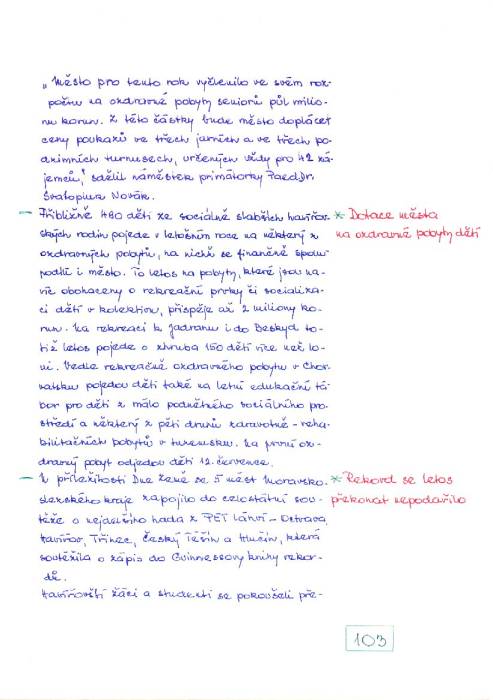 „Město pro tento rok vyčlenilo ve svém roz-
počtu na ozdravné pobyty seniorů půl milio-
nu korun. Z této částky bude město doplácet
ceny poukazů ve třech jarních a ve třech po-
dzimních turnusech, určených vždy pro 42 zá-
jemců," sdělil náměstek primátorky PaedDr.
Svatopluk Novák.
– Přibližně 480 dětí ze sociálně slabších havířov-
ských rodin pojede v letošním roce na některý z
ozdravných pobytů, na nichž se finančně spolu-
podílí i město. To letos na pobyty, které jsou na-
víc obohaceny o rekreační prvky či socializa-
ci dětí v kolektivu, přispěje až 2 miliony ko-
run. Za rekreací k Jadranu i do Beskyd to-
tiž letos pojede o zhruba 150 dětí více než lo-
ni. Vedle rekreačně ozdravného pobytu v Chor-
vatsku pojedou děti také na letní edukační tá-
bor pro děti z málo podnětného sociálního pro-
středí a některý z pěti druhů zdravotně-reha-
bilitačních pobytů v tuzemsku. Na první oz-
dravný pobyt odjedou děti 12. července.
* Dotace města
na ozdravné pobyty dětí
– U příležitosti Dne Země se 5 měst Moravsko-
slezského kraje zapojilo do celostátní sou-
těže o nejdelšího hada z PET lahví – Ostrava,
Havířov, Třinec, Český Těšín a Hlučín, která
soutěžila o zápis do Guinnessovy knihy rekor-
dů.
Havířovští žáci a studenti se pokoušeli pře-
* Rekord se letos
překonat nepodařilo
103